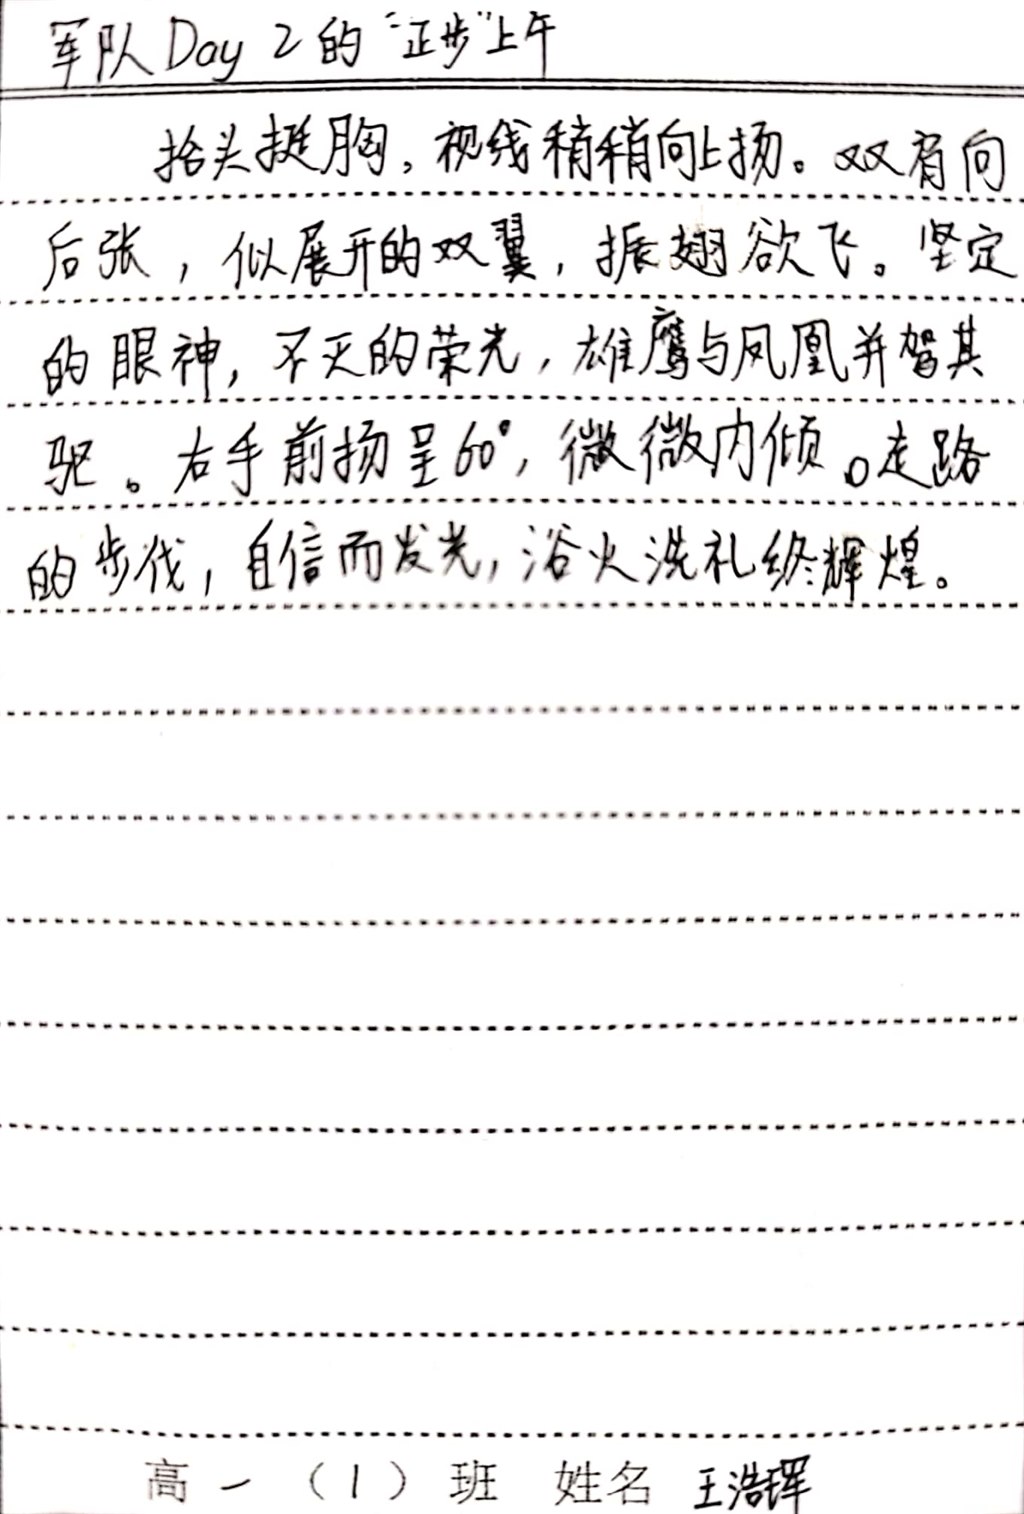 军队Day 2的“正步”上午
抬头挺胸，视线稍稍向上扬。双肩向
后张，似展开的双翼，振翅欲飞。坚定
的眼神，不灭的荣光，雄鹰与凤凰并驾其
驱。右手前扬呈60°，微微内倾。走路
的步伐，自信而发光，浴火洗礼终辉煌。
高一（1）班 姓名 王浩珲